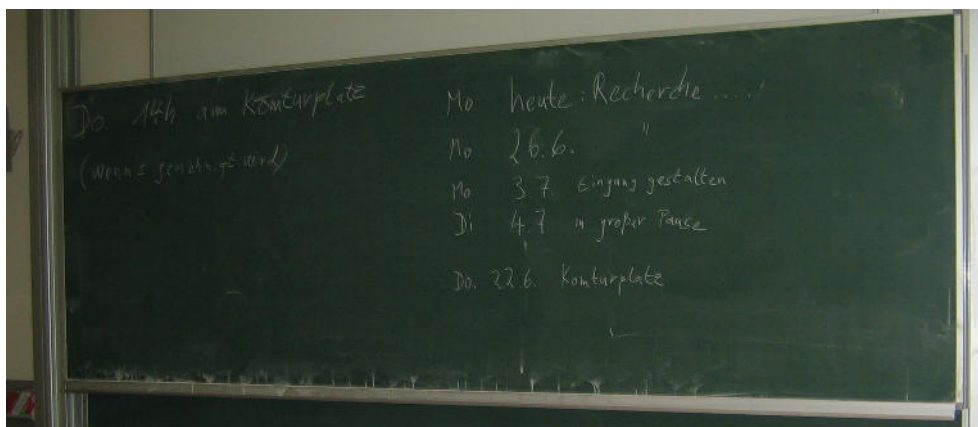 Do. 14h am Komturplatz
(wenn's genehmigt wird)
Mo heute: Recherche.....!
Mo 26.6. "
Mo 3.7. Eingang gestalten
Di 4.7 in großer Pause
Do. 22.6. Komturplatz